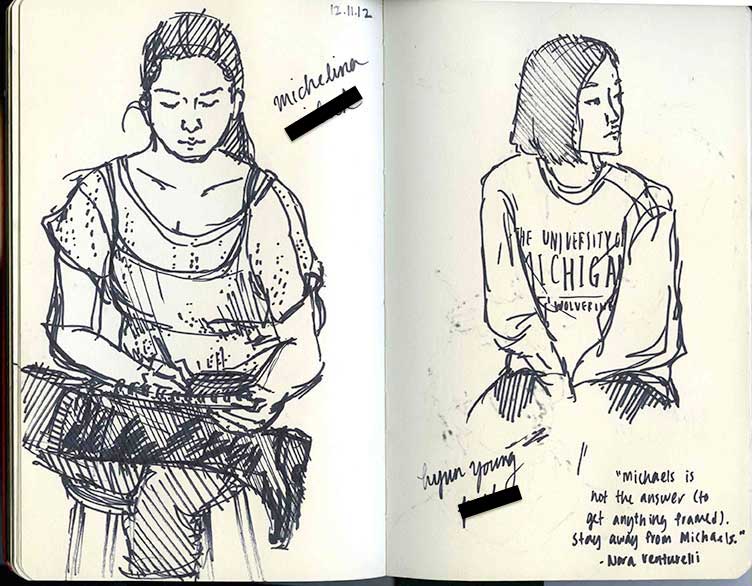 12.11.12
michelina
THE UNIVERSITY OF
MICHIGAN
WOLVERINE
hyun young
"Michaels is
not the answer (to
get anything framed).
Stay away from Michaels."
- Nora Venturelli